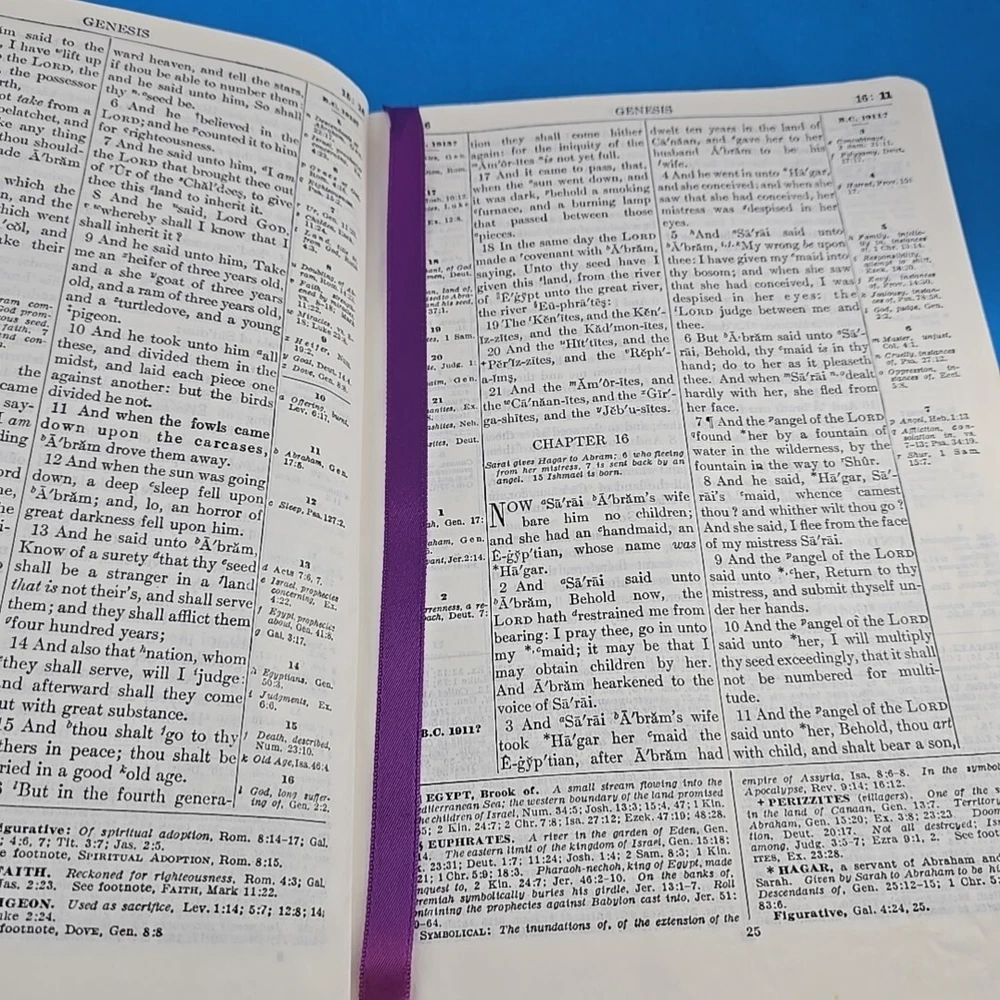 GENESIS
ăm said to the
I have ᵘlift up
the LORD, the
the possessor
rth,
ot take from a
oelatchet, and
ke any thing
thou should-
ade Ā´brăm
which the
n, and the
hich went
ake their
the
came
say-
I am
ding
ward heaven, and tell the stars,
if thou be able to number them:
and he said unto him, So shall
thy ⁿ·ᵒseed be.
6 And he ᵖbelieved in the
LORD; and he ᵖcounted it to him
for ᵠrighteousness.
7 And he said unto him, ᵠI am
the LORD that brought thee out
of ʳÛr of the ˢChăl´dees, to give
thee this ᵗland to inherit it.
8 And he ᵘsaid, Lord GOD,
ᵛwhereby shall I know that I
shall inherit it?
9 And he said unto him, Take
me an ˣheifer of three years old,
and a she ʸgoat of three years
old, and a ram of three years old,
and a ᶻturtledove, and a young
ᶻpigeon.
10 And he took unto him ᵃall
these, and divided them in the
midst, and laid each piece one
against another: but the birds
divided he not.
11 And when the fowls came
down upon the carcases,
ᵇĀ´brăm drove them away.
12 And when the sun was going
down, a deep ᶜsleep fell upon
ᵇĀ´brăm; and, lo, an horror of
great darkness fell upon him.
13 And he said unto ᵇĀ´brăm,
Know of a surety ᵈthat thy ᵉseed
shall be a stranger in a ᶠland
that is not their's, and shall serve
them; and they shall afflict them
ᵍfour hundred years;
14 And also that ʰnation, whom
they shall serve, will I ⁱjudge:
and afterward shall they come
out with great substance.
15 And ᵇthou shalt ʲgo to thy
thers in peace; thou shalt be
ried in a good ᵏold age.
ˡBut in the fourth genera-
9
Heifer, Num.
19:2.
y Goat, Deut. 14:4.
z Dove, Gen. 8:8.
10
a Offering, burnt,
Lev. 6:17.
11
b Abraham, Gen.
17:5.
12
c Sleep, Psa. 127:2.
13
d Acts 7:6, 7.
e Israel, prophecies
concerning, Ex.
4:22.
f Egypt, prophecies
about, Gen. 41:8.
g Gal. 3:17.
14
h Egyptians, Gen.
50:3.
i Judgments, Ex.
6:6.
15
j Death, described,
Num. 23:10.
k Old Age, Isa. 46:4.
16
l God, long suffer-
ing of, Gen. 2:2.
gurative: Of spiritual adoption, Rom. 8:14-17; Gal.
4:6, 7; Tit. 3:7; Jas. 2:5.
e footnote, SPIRITUAL ADOPTION, Rom. 8:15.
FAITH. Reckoned for righteousness, Rom. 4:3; Gal.
Jas. 2:23. See footnote, FAITH, Mark 11:22.
IGEON. Used as sacrifice, Lev. 1:14; 5:7; 12:8; 14;
uke 2:24.
footnote, DOVE, Gen. 8:8
GENESIS
16: 11
tion they shall come hither
again: for the iniquity of the
ᵐĀm´ôr-ītes ⁿis not yet full.
17 And it came to pass, that,
when the ᵒsun went down, and
it was dark, ᵖbehold a smoking
ᵠfurnace, and a burning lamp
that passed between those
ʳpieces.
18 In the same day the LORD
made a ˢcovenant with ᵇĀ´brăm,
saying, Unto thy seed have I
given this ᵗland, from the river
of ᵗĒ´ġy̆pt unto the great river,
the river ᵗEū-phrā´tēs:
19 The ᵘKĕn´ītes, and the Kĕn´-
ĭz-zītes, and the Kăd´mon-ītes,
20 And the ᵛHĭt´tītes, and the
+Pĕr´ĭz-zītes, and the ʷRĕph´-
a-ĭmş,
21 And the ᵐĂm´ôr-ītes, and
the ˣCā´năan-ītes, and the ʸGĭr´-
ga-shītes, and the ᶻJĕb´u-sītes.
CHAPTER 16
Sarai gives Hagar to Abram; 6 who fleeing
from her mistress, 7 is sent back by an
angel. 15 Ishmael is born.
NOW ᵃSā´rāi ᵇĀ´brăm's wife
bare him no children;
and she had an ᶜhandmaid, an
Ē-ġy̆p´tian, whose name was
*Hā´gar.
2 And ᵃSā´rāi said unto
ᵇĀ´brăm, Behold now, the
LORD hath ᵈrestrained me from
bearing: I pray thee, go in unto
my *,ᶜmaid; it may be that I
may obtain children by her.
And Ā´brăm hearkened to the
voice of Sā´rāi.
3 And ᵃSā´rāi ᵇĀ´brăm's wife
took *Hā´gar her ᶜmaid the
Ē-ġy̆p´tian, after Ā´brăm had
B.C. 1911?
dwelt ten years in the land of
Cā´năan, and ᵉgave her to her
husband Ā´brăm to be his
ᶠwife.
4 And he went in unto *Hā´gar,
and she conceived: and when she
saw that she had conceived, her
mistress was ᵍdespised in her
eyes.
5 ʰAnd ᵃSā´rāi said unto
ᵇĀ´brăm, ⁱ·ʲ·My wrong be upon
thee: I have given my ᶜmaid into
thy bosom; and when she saw
that she had conceived, I was
despised in her eyes: the
LORD judge between me and
thee.
6 But ᵇĀ´brăm said unto ᵃSā´-
rāi, Behold, thy ᶜmaid is in thy
hand; do to her as it pleaseth
thee. And when ᵐSā´rāi ⁿ·ᵒdealt
hardly with her, she fled from
her face.
7 ¶ And the ᵖangel of the LORD
ᵠfound *her by a fountain of
water in the wilderness, by the
fountain in the way to ʳShûr.
8 And he said, *Hā´gar, Sā´-
rāi's ᶜmaid, whence camest
thou? and whither wilt thou go?
And she said, I flee from the face
of my mistress Sā´rāi.
9 And the ᵖangel of the LORD
said unto *,ᶜher, Return to thy
mistress, and submit thyself un-
der her hands.
10 And the ᵖangel of the LORD
said unto *her, I will multiply
thy seed exceedingly, that it shall
not be numbered for multi-
tude.
11 And the ᵖangel of the LORD
said unto *her, Behold, thou art
with child, and shalt bear a son,
B.C. 1911?
6
m Master, unjust,
Col. 4:1.
n Cruelty, instances
of, Psa. 27:12.
o Oppression, in-
stances of, Eccl.
5:8.
7
p Angel, Heb. 1:13
q Affliction, con-
solation in, vs.
7-13; Psa. 34:19.
r Shur, 1 Sam.
15:7.
EGYPT, Brook of. A small stream flowing into the
diterranean Sea; the western boundary of the land promised
he children of Israel, Num. 34:5; Josh. 13:3; 15:4, 47; 1 Kin.
5; 2 Kin. 24:7; 2 Chr. 7:8; Isa. 27:12; Ezek. 47:19; 48:28.
§ EUPHRATES. A river in the garden of Eden, Gen.
14. The eastern limit of the kingdom of Israel, Gen. 15:18;
. 23:31; Deut. 1:7; 11:24; Josh. 1:4; 2 Sam. 8:3; 1 Kin.
21; 1 Chr. 5:9; 18:3. Pharaoh-nechoh, king of Egypt, made
nquest to, 2 Kin. 24:7; Jer. 46:2-10. On the banks of,
remiah symbolically buries his girdle, Jer. 13:1-7. Roll
ntaining the prophecies against Babylon cast into, Jer. 51:
0-64.
SYMBOLICAL: The inundations of, of the extension of the
empire of Assyria, Isa. 8:6-8. In the symbol
Apocalypse, Rev. 9:14; 16:12.
+ PERIZZITES (villagers). One of the s
in the land of Canaan, Gen. 13:7. Territor
Abraham, Gen. 15:20; Ex. 3:8; 23:23 Doom
tion, Deut. 20:17. Not all destroyed; Is
among, Judg. 3:5-7; Ezra 9:1, 2. See foot
ITES, Ex. 23:28.
* HAGAR, a servant of Abraham and
Sarah. Given by Sarah to Abraham to be hi
Descendants of, Gen. 25:12-15; 1 Chr. 5:
83:6.
Figurative, Gal. 4:24, 25.
25